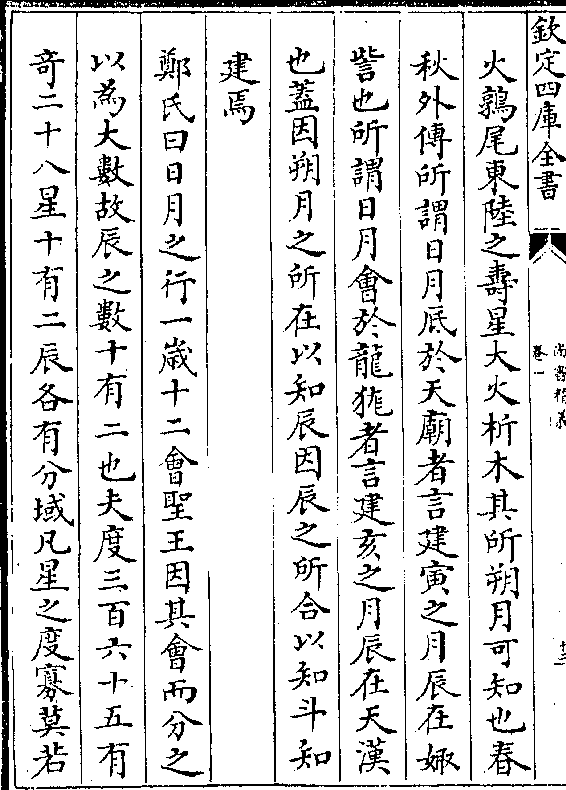 欽定四庫全書
尚書精義
卷一
火鶉尾東陸之壽星大火析木其所朔月可知也春
秋外傳所謂日月底於天廟者言建寅之月辰在娵
訾也所謂日月會於龍𧱓者言建亥之月辰在天漢
也蓋因朔月之所在以知辰因辰之所合以知斗知
建焉
鄭氏曰日月之行一歲十二會聖王因其會而分之
以為大數故辰之數十有二也夫度三百六十五有
奇二十八星十有二辰各有分域凡星之度寡莫若